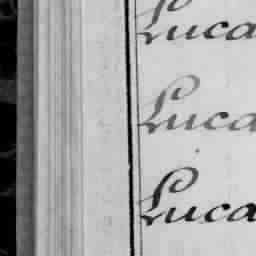 Luca
Luca
Luca